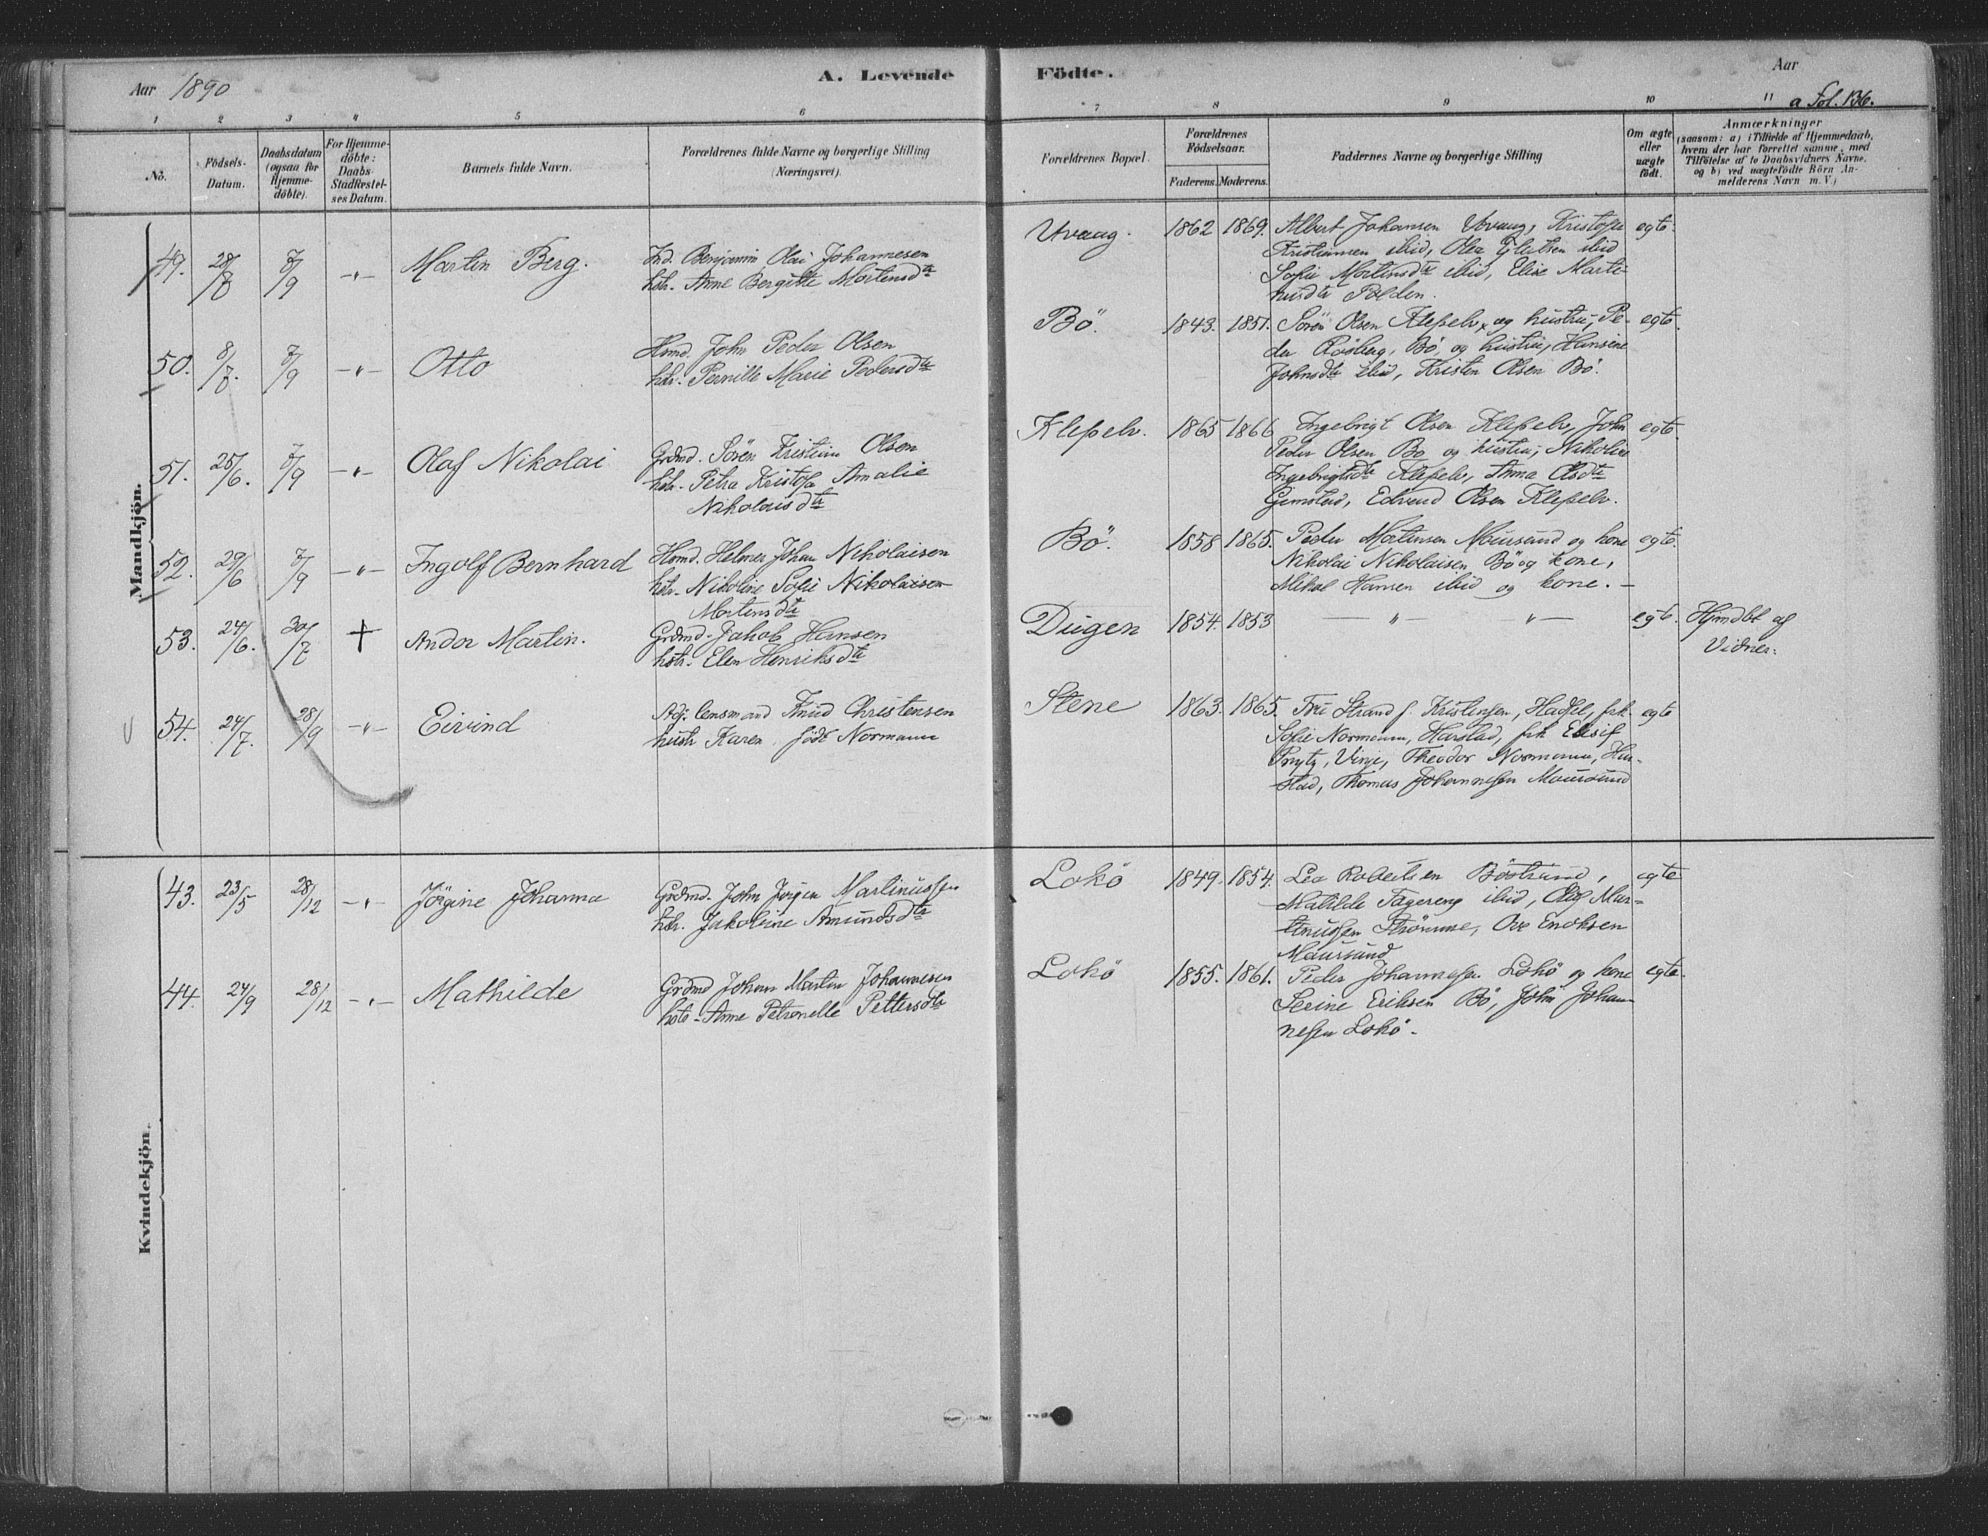 Aar 1890
A. Levende Födte.
Aar
a Fol. 136.
1 2 3 4 5 6 7 8 9 10 11
No.
Födsels-
Datum.
Daabsdatum
(ogsaa for
Hjemme-
döbte).
For Hjemme-
döbte:
Daabs-
Stadfæstel-
ses Datum.
Barnets fulde Navn.
Forældrenes fulde Navne og borgerlige Stilling
(Næringsvei).
Forældrenes Bopæl.
Forældrenes
Födselsaar.
Faderens. Moderens.
Faddernes Navne og borgerlige Stilling
Om ægte
eller
uægte
födt.
Anmærkninger
(saasom: a) i Tilfælde af Hjemmedaab,
hvem der har forrettet samme, med
Tilföielse af to Daabsvidners Navne,
og b) ved uægtefödte Börn An-
melderens Navn m. V.)
Mandkjön.
49. 28/8 7/9 -"- Martin Berg.
Ind. Benjamin Olai Johannesen
hstr. Anne Bergitte Mortensdtr
Uvaag. 1862 1869.
Albert Johansen Uvaag, Kristofa
Kristiansen ibid, Olea
ibid
Sofie Mortensdtr ibid, Elise Marti-
nusdtr Polden.
egte.
50. 8/8. 7/9 -"- Otto
Hsmd. John Peder Olsen
hstr. Pernille Marie Pedersdtr
Bö. 1843. 1851.
Sören Olsen Klepelv og hustru, Pe-
der Rösberg, Bö og hustru, Hansene
Johnsdtr ibid, Kristen Olsen Bö.
egte.
51. 25/6. 7/9 -"- Olaf Nikolai
Grdmd. Sören Kristian Olsen
hstr. Petra Kristofa Amalie
Nikolaisdtr
Kleßelv. 1865 1866
Ingebrigt Olsen Kleßelv, John
Peder Olsen Bö og hustru, Nikoline
Ingebrigtsdtr Kleßelv, Anna Olsdtr
Gimstad, Edvard Olsen Kleßelv.
egte.
52. 29/6 7/9 -"- Ingolf Bernhard
Hsmd. Helmer Johan Nikolaisen
hstr. Nikoline Sofie Nikolaisen
Mortensdtr
Bö. 1858 1865.
Peder Mortensen Maursund og kone
Nikolai Nikolaisen Bö og kone,
Mikal Hansen ibid og kone. -
egte.
53. 24/6. 30/7 + Andor Martin.
Grdmd. Jakob Hansen
hstr. Elen Henriksdtr
Dugen 1854. 1853 -"- -"- egte. Hjmdbt af
Vidner.
54. 24/7. 28/9 -"- Eivind
Adj. lensmand Knud Christensen
hustr Karen född Normann
Stene 1863. 1865.
Fru Strand f. Kristensen, Hadsel, frk.
Sofie Normann, Harstad, frk Elisif
Prytz, Vinje, Theodor Normann, Har-
stad, Thomas Johanneßen Maursund
egte
Kvindekjön.
43. 23/5 28/12 -"- Jörgine Johanna
Grdmd. John Jörgen Martinussen
hstr. Jakobine Amundsdtr
Lokö 1849. 1854.
Lea Robertsen Böstrand,
Matilde Fagereng ibid, Olaf Mar-
tinussen Strömme, Ove Enoksen
Maursund
egte
44. 24/9 28/12 -"- Mathilde
Grdmd Johan Martin Johannesen
hstr - Anne Petronelle Pettersdtr
Lokö 1855. 1861.
Peder Johannesen Lokö og kone
Serine Eriksen Bö, John Johan-
nesen Lokö -
egte.